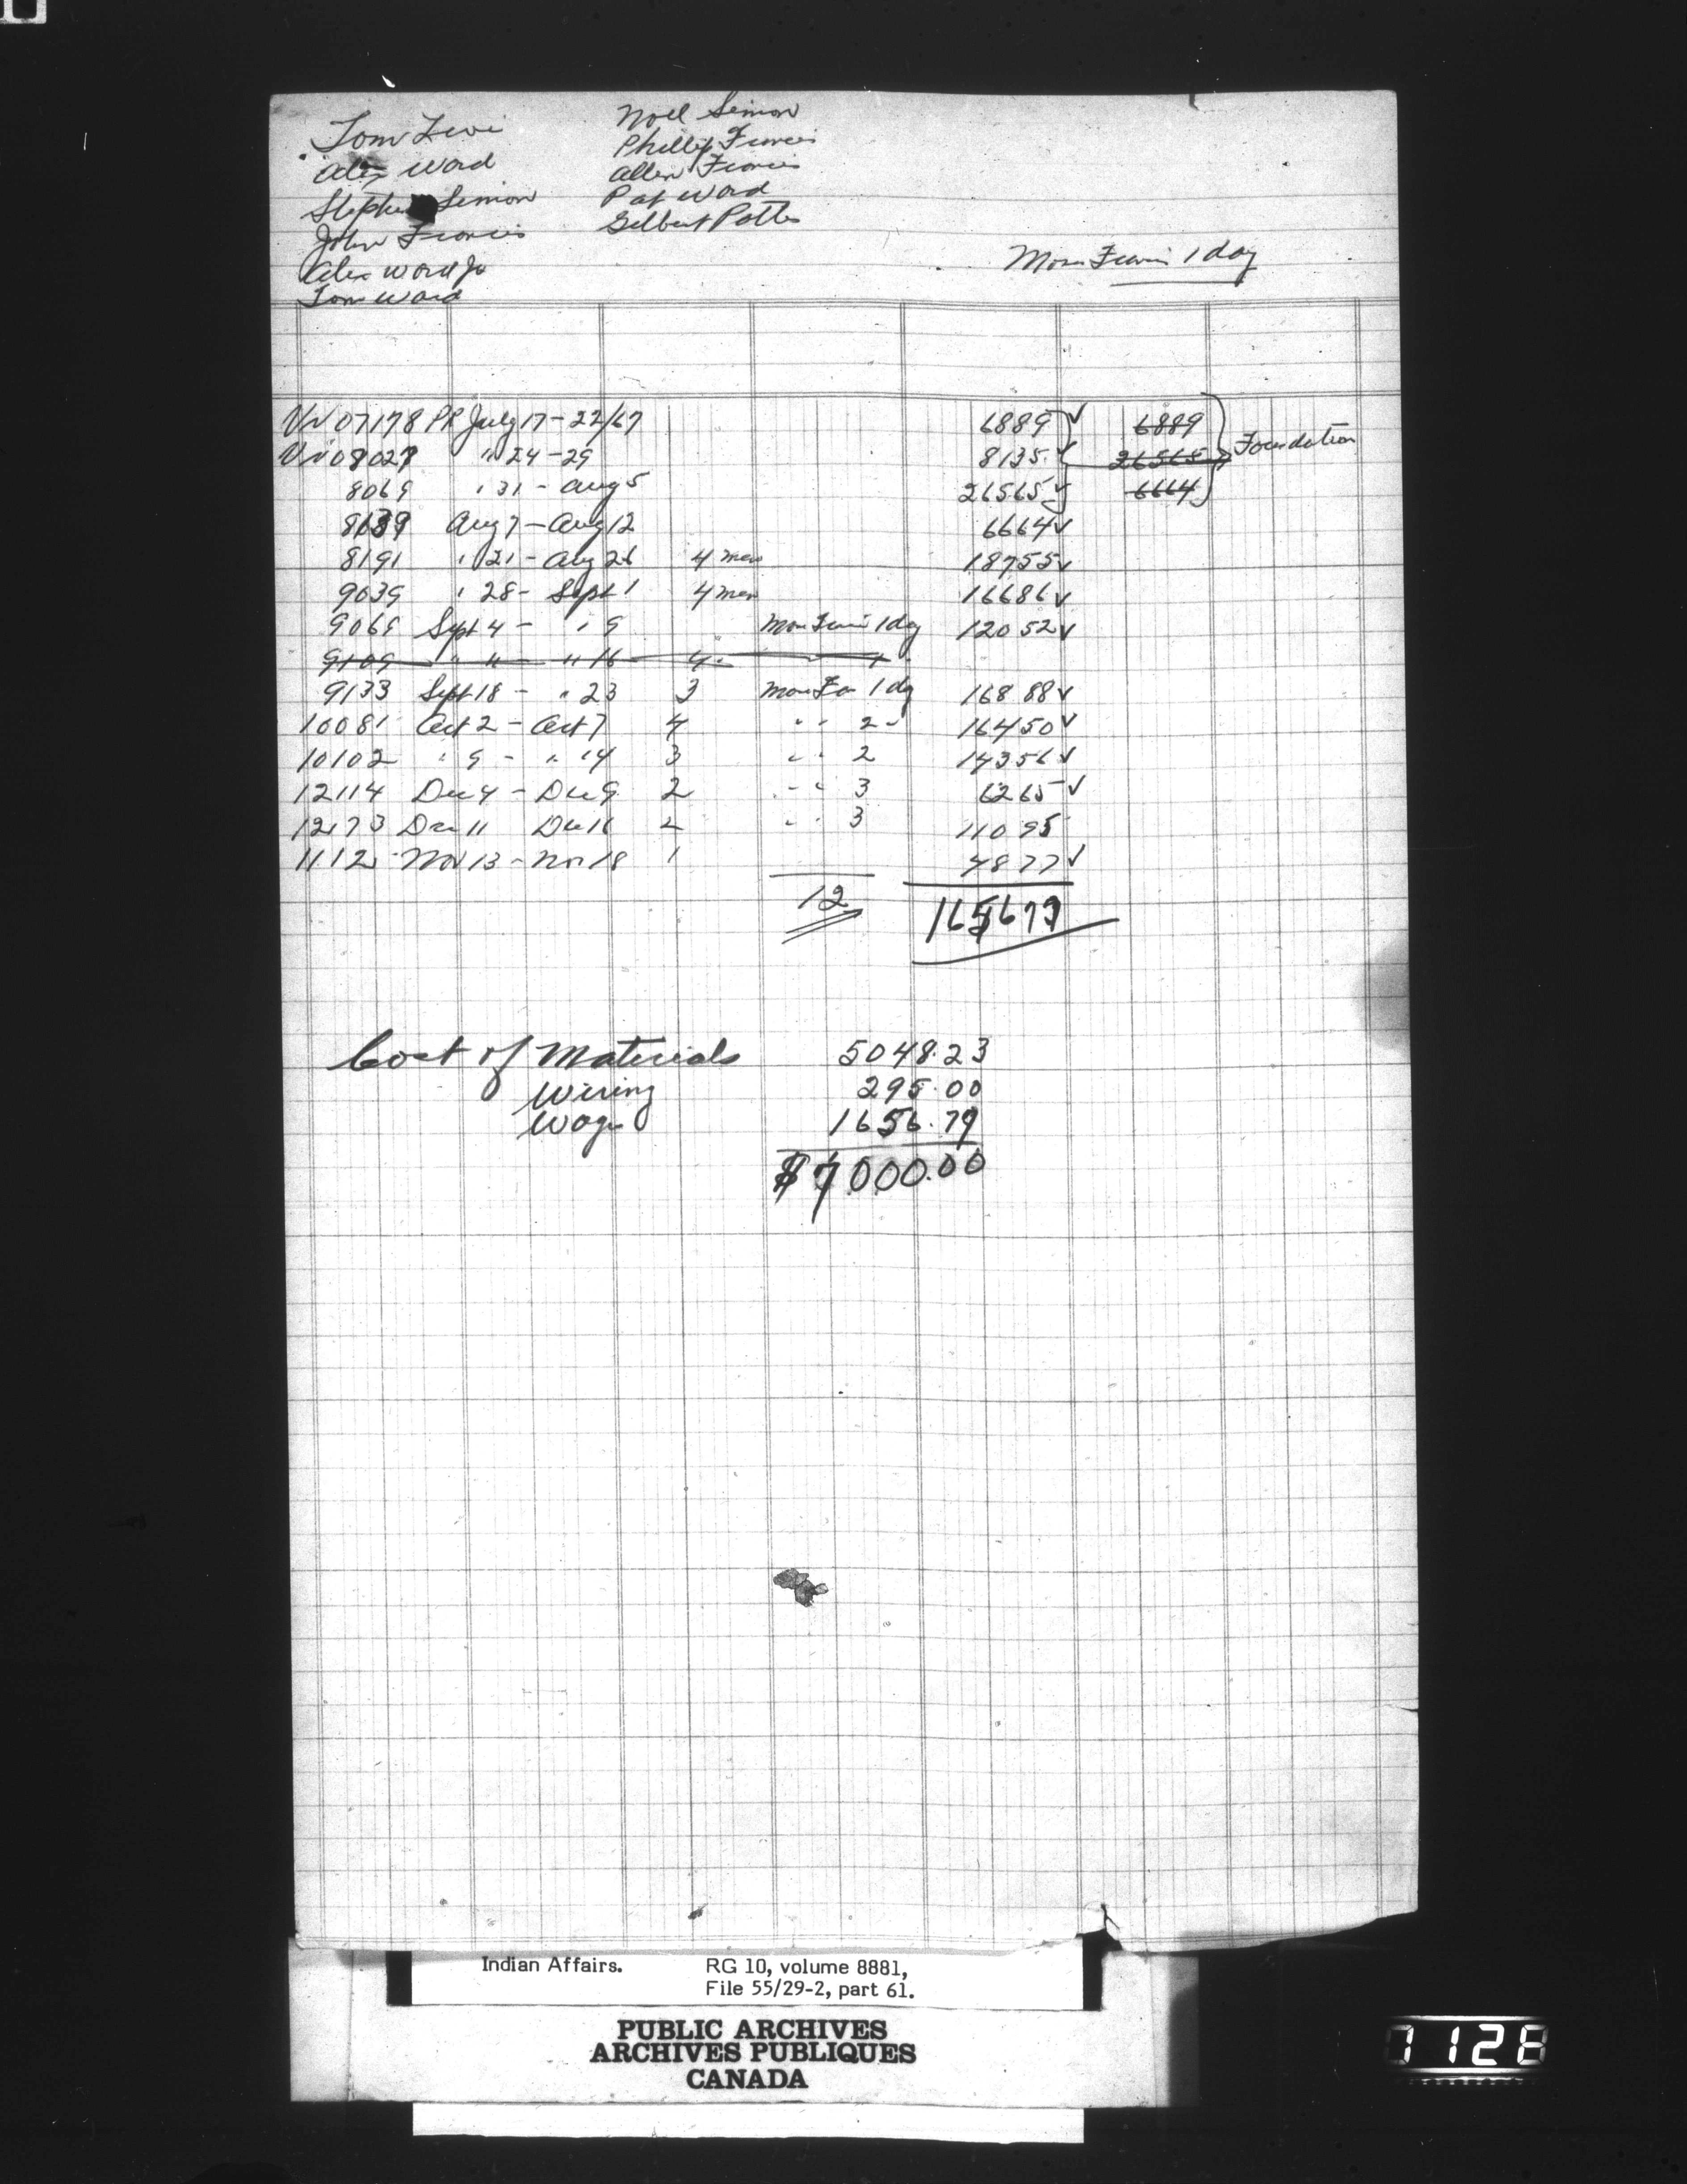 Tom Levi
Alex Ward
Stephen Simon
John Francis
Alex Ward Jr
Tom Ward
Noel Simon
Phillip Francis
Allen Francis
Pat Ward
Gilbert Potts
Mose Francis 1 day
07178 PR July 17-22/67 6889 ✓ 6889
08027 " 24-29 8135 ✓ 26565 Foundation
8069 " 31 - Aug 5 26565 ✓ 6664
8139 Aug 7 - Aug 12 6664 ✓
8191 " 21 - Aug 26 4 men 18755 ✓
9039 " 28 - Sept 1 4 men 16686 ✓
9069 Sept 4 - " 9 Mose Francis 1 day 12052 ✓
9109 " 11 - " 16 4
9133 Sept 18 - " 23 3 Mose Fra 1 dy 16888 ✓
10081 Oct 2 - Oct 7 4 " " 2 " 16450 ✓
10102 " 9 - " 14 3 " " 2 14356 ✓
12114 Dec 4 - Dec 9 2 " " 3 6265 ✓
12173 Dec 11 Dec 16 2 " " 3 11095
1112 Nov 13 - Nov 18 1 4877 ✓
12 165677
Cost of Materials 5048.23
Wiring 295.00
Wage 1656.79
$7000.00
Indian Affairs. RG 10, volume 8881,
File 55/29-2, part 61.
PUBLIC ARCHIVES
ARCHIVES PUBLIQUES
CANADA
1128